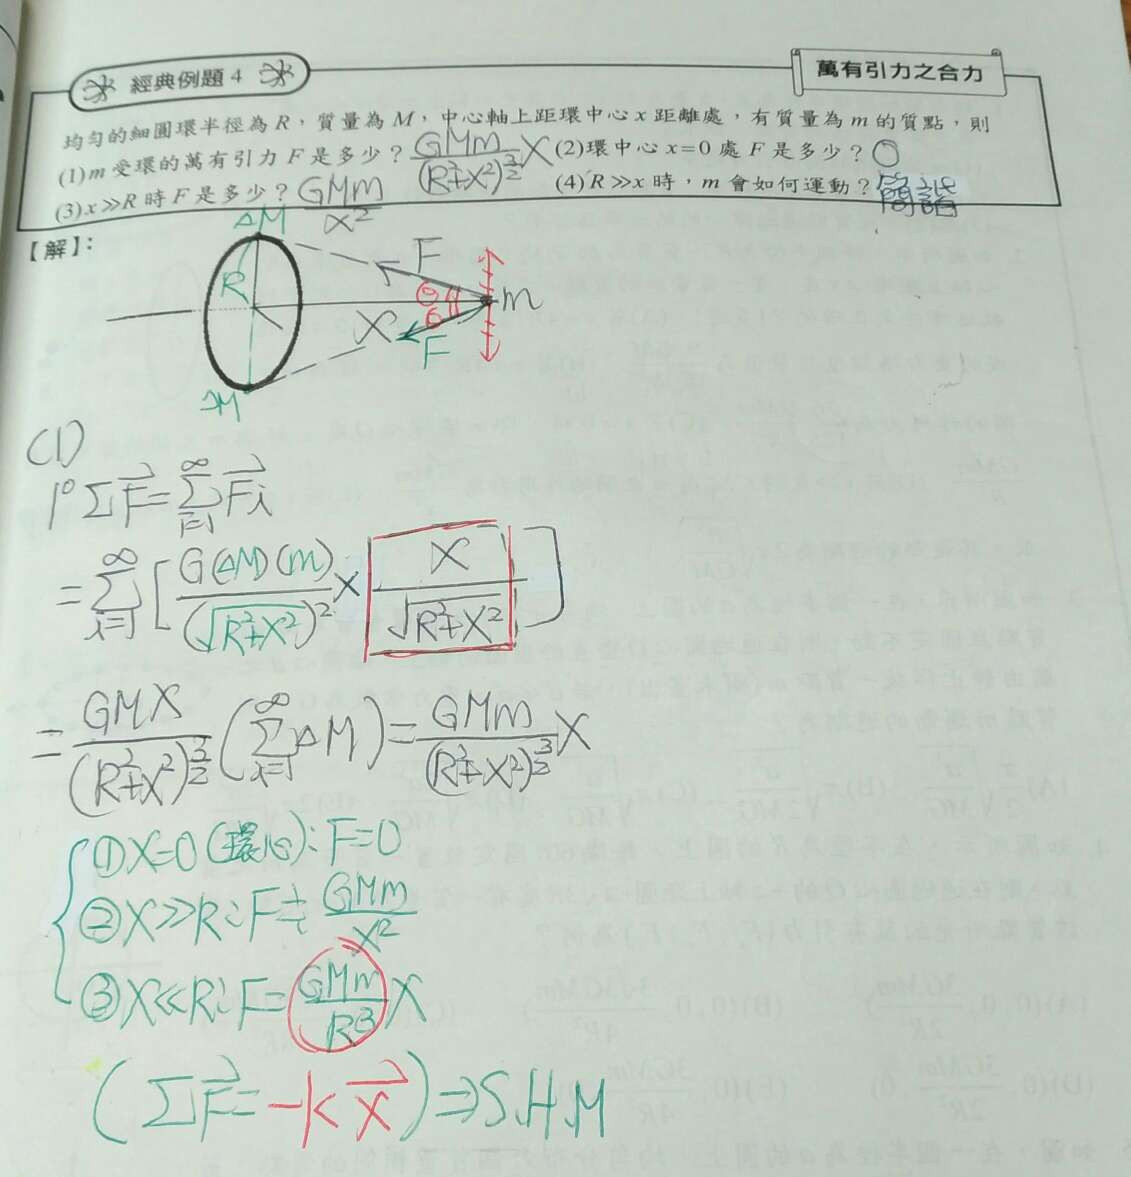 經典例題 4
萬有引力之合力
均勻的細圓環半徑為 R，質量為 M，中心軸上距環中心 x 距離處，有質量為 m 的質點，則
(1)m 受環的萬有引力 F 是多少？ GMm/(R²+X²)^(3/2) X (2)環中心 x=0 處 F 是多少？ 0
(3)x≫R 時 F 是多少？ GMm/X² (4) R≫x 時，m 會如何運動？簡諧
【解】：
ΔM
R
F
θ
θ
m
X
F
ΔM
(1)
1° ΣF⃗ = Σ(i=1→∞) F⃗i
= Σ(i=1→∞) [ G(ΔM)(m)/(√(R²+X²))² × X/√(R²+X²) ]
= GMX/(R²+X²)^(3/2) (Σ(i=1→∞) ΔM) = GMm/(R²+X²)^(3/2) X
①X=0 (環心): F=0
②X≫R: F≒ GMm/X²
③X≪R: F= GMm/R³ X
(ΣF⃗ = -kx⃗) ⇒ S.H.M